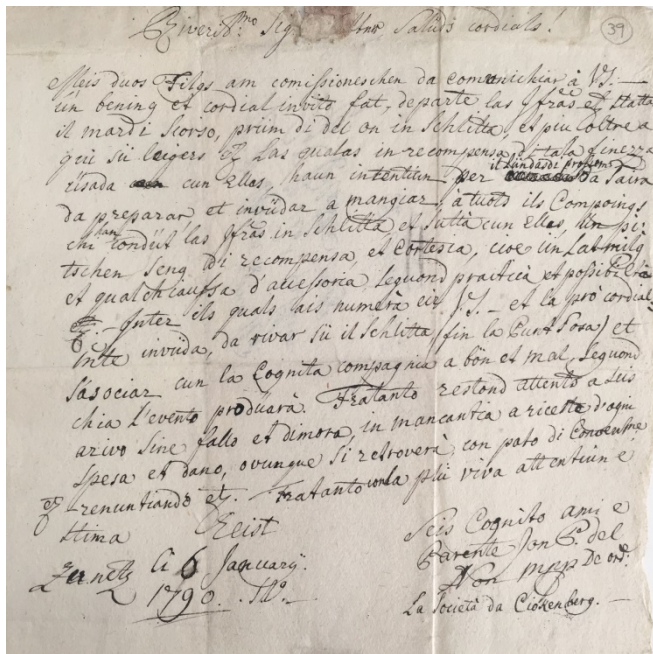 Riverit.mo Sig Salüds cordials!
39
Meis duos Filgs am comissioneschen da comunichiar à V.S. —
un bening et cordial invit fat, departe las ffras et
il mardi scorso, prüm di del on in Schlitta, et piu oltre a
qui sü leigers & Las qualas in recompensa d'tala finezza
üsada cun Ellas, haun intentiun per il Lündasdi proxm.o da Saira
da preparar, et invüdar a mangiar, à tuots ils Compoings
chi han condüt las ffras in Schlitta et sutià cun Ellas, ün pi:
tschen Seng di recompensa, et Cortesia, cioè ün Latmilg
et qualchiaussa d'accessoria, seguond practicà et possibiltà
&.- Inter ils quals ais numerà eir V.S. - et la prò cordial:
mte invüda, da rivar sü il Schlitta (fin la Punt Sosa) et
s'asociar cun la Cognita compagnia a bön et mal, seguond
chia l'evento prodüarà. Fratanto restond attents a seis
arivo sine fallo et dimora, in mancantia a ricetta d'ogni
spesa et dano, ovunque si retroverà, con pato di
& renuntiando et. Fratanto con la plü viva attentiun e
stima Reist
Zernetz li 6 January.
1790.
Seis Cognito ami e
Parente Jon P. del
Non mpp De ord.
La Società da